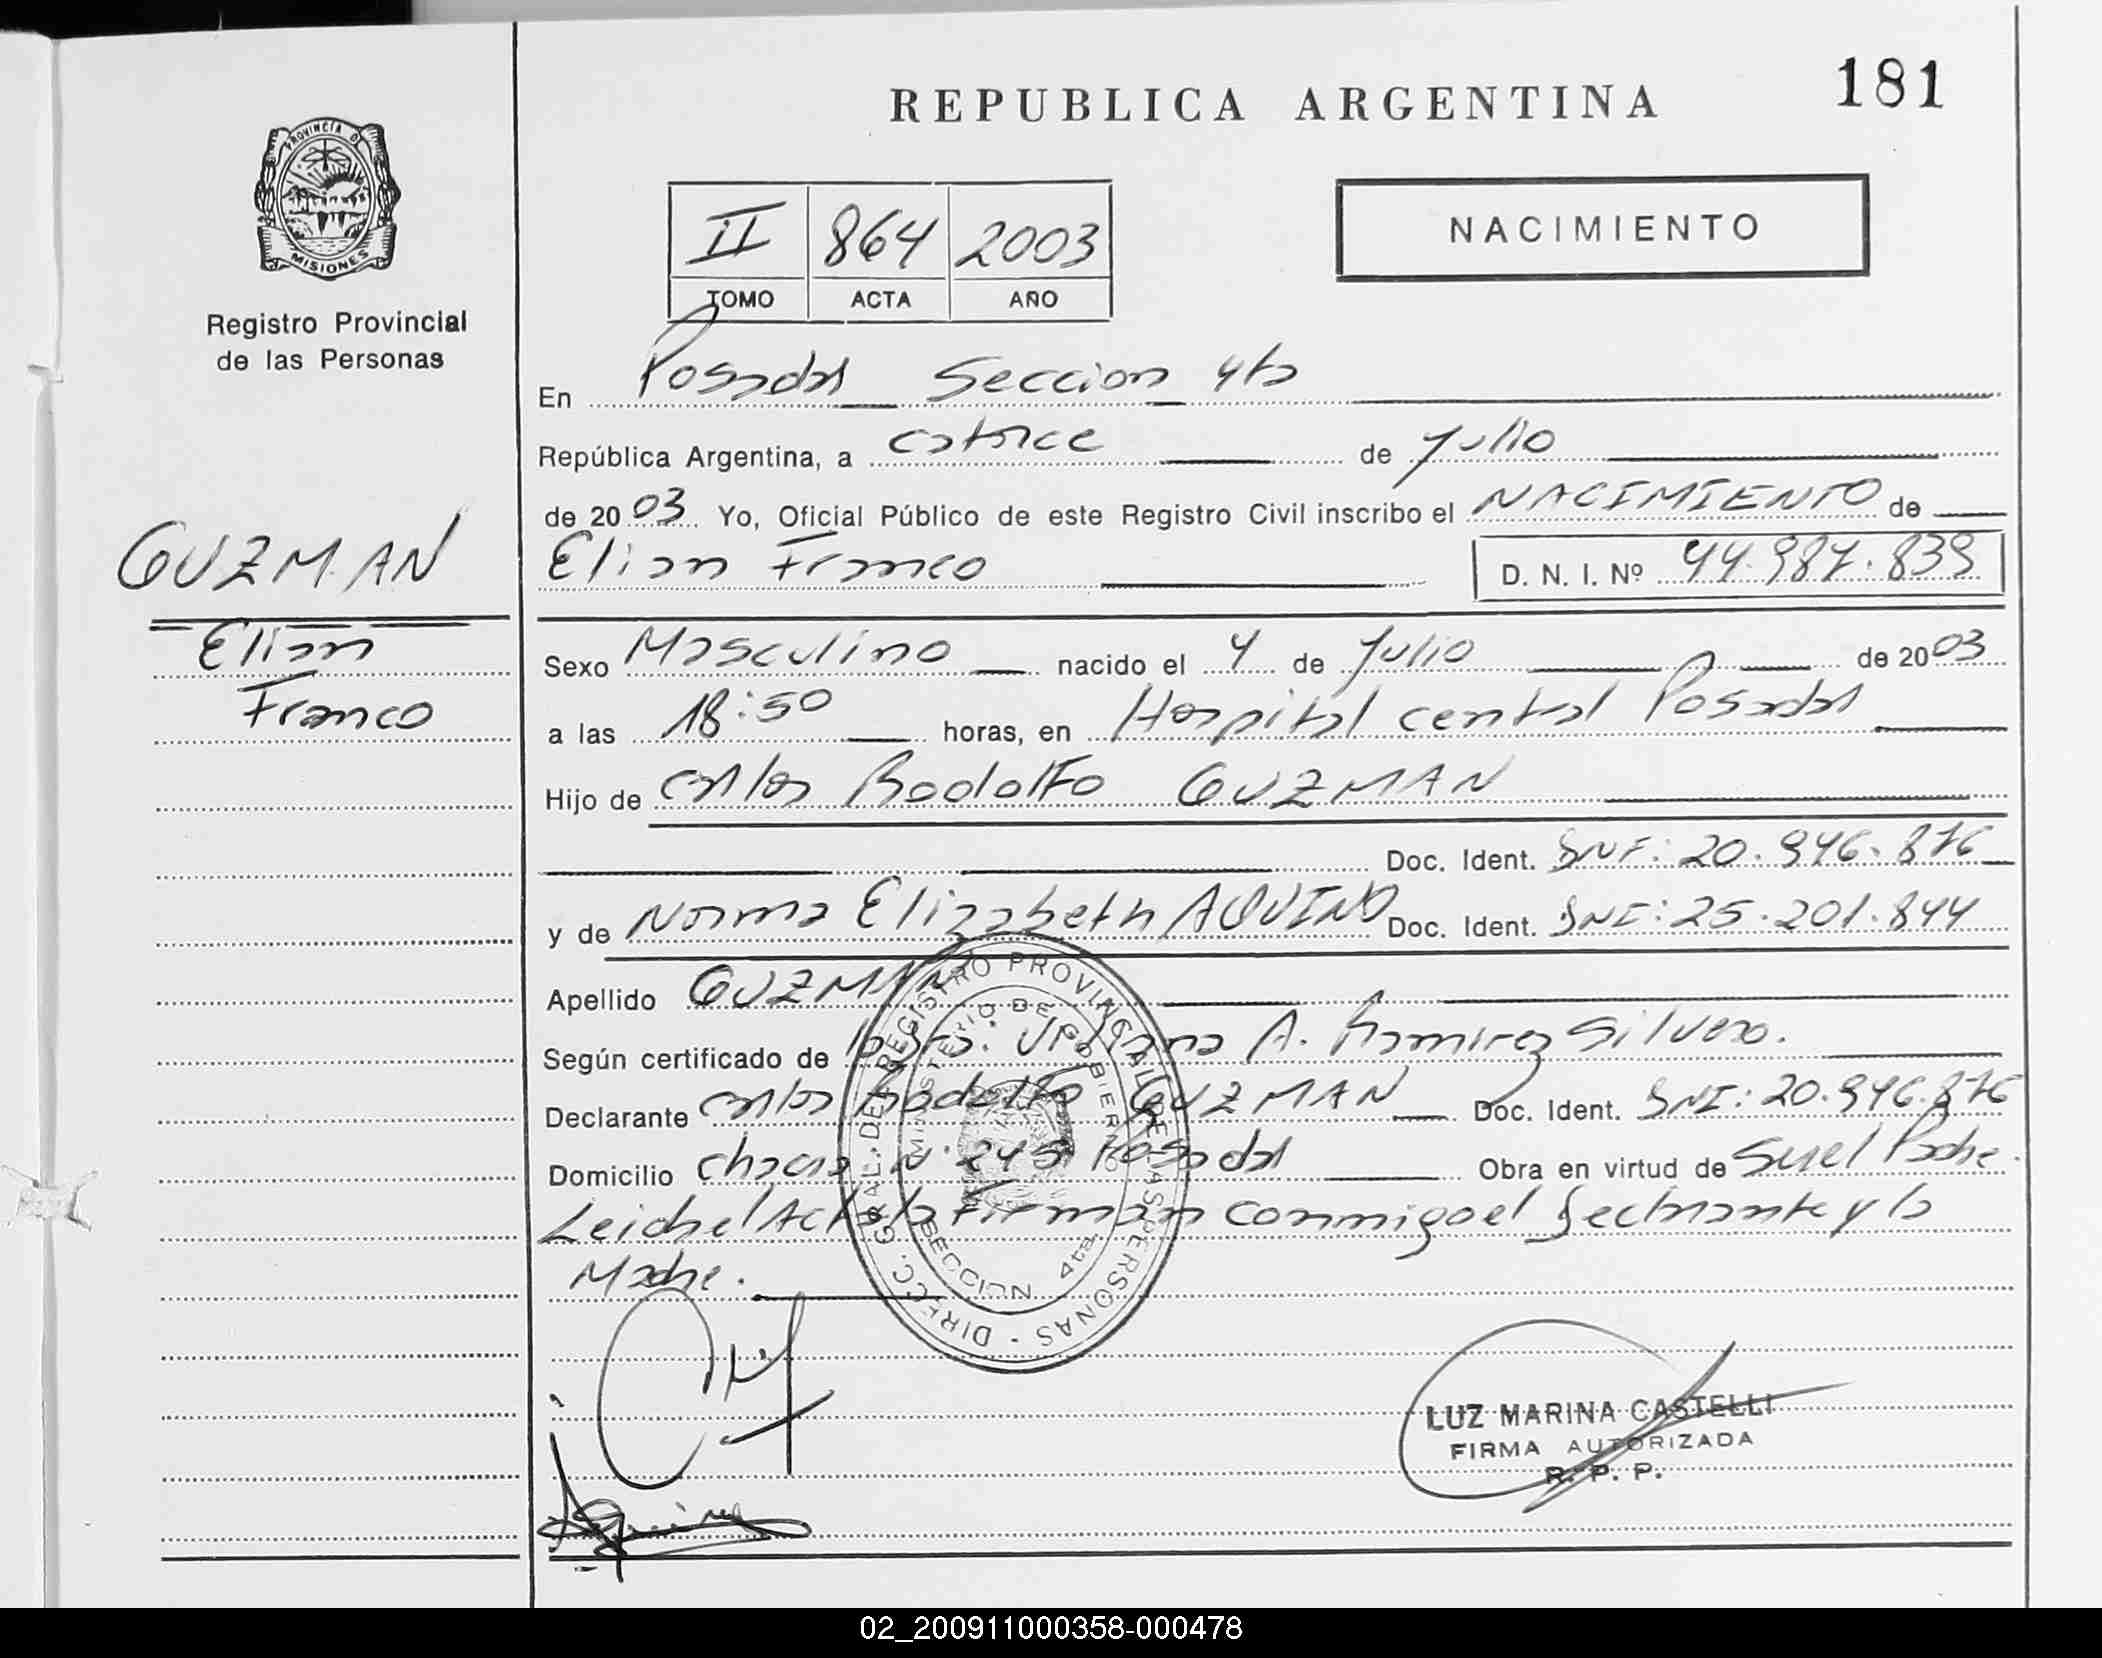 181
REPUBLICA ARGENTINA
PROVINCIA DE
MISIONES
Registro Provincial
de las Personas
II 864 2003
TOMO ACTA AÑO
NACIMIENTO
En Posadas Seccion 4ta
República Argentina, a catorce de Julio
de 2003 Yo, Oficial Público de este Registro Civil inscribo el NACIMIENTO de
Elian Franco D. N. I. Nº 44.987.839
GUZMAN
Elian
Franco
Sexo Masculino nacido el 4 de Julio de 2003
a las 18:50 horas, en Hospital central Posadas
Hijo de Carlos Rodolfo GUZMAN
Doc. Ident. DNI: 20.946.876
y de Norma Elizabeth AQUINO Doc. Ident. DNI: 25.201.844
Apellido GUZMAN
Según certificado de A. Ramirez Silvero.
Declarante Carlos Rodolfo GUZMAN Doc. Ident. DNI: 20.946.876
Domicilio chacra N° 245 Posadas Obra en virtud de Ser el Padre.
Leida el Acta la Firman conmigo el declarante y la
Madre.
DIREC. GRAL. DEL REGISTRO PROVINCIAL DE LAS PERSONAS
MINISTERIO DE GOBIERNO
SECCION 4ta.
LUZ MARINA CASTELLI
FIRMA AUTORIZADA
R. P. P.
02_200911000358-000478